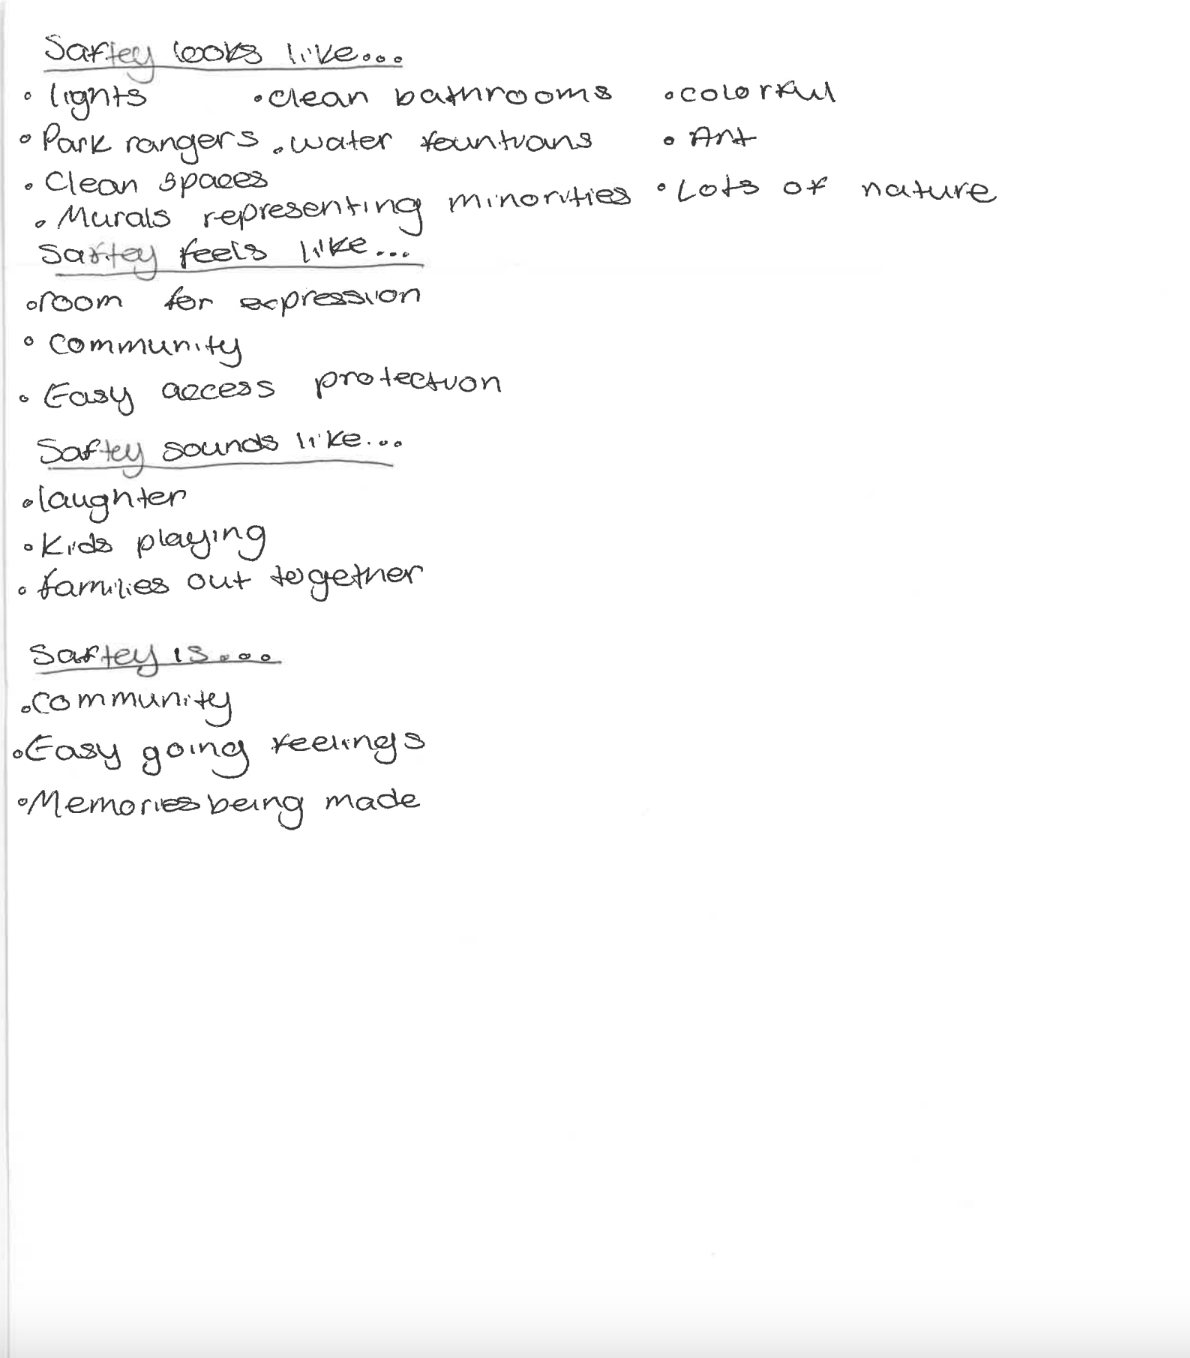 Saftey looks like...
• lights • clean bathrooms • colorful
• Park rangers • water fountians • Art
• Clean spaces
• Murals representing minorities • Lots of nature
Saftey feels like...
• room for expression
• Community
• Easy access protection
Saftey sounds like...
• laughter
• Kids playing
• families out together
Saftey is....
• Community
• Easy going feelings
• Memories being made